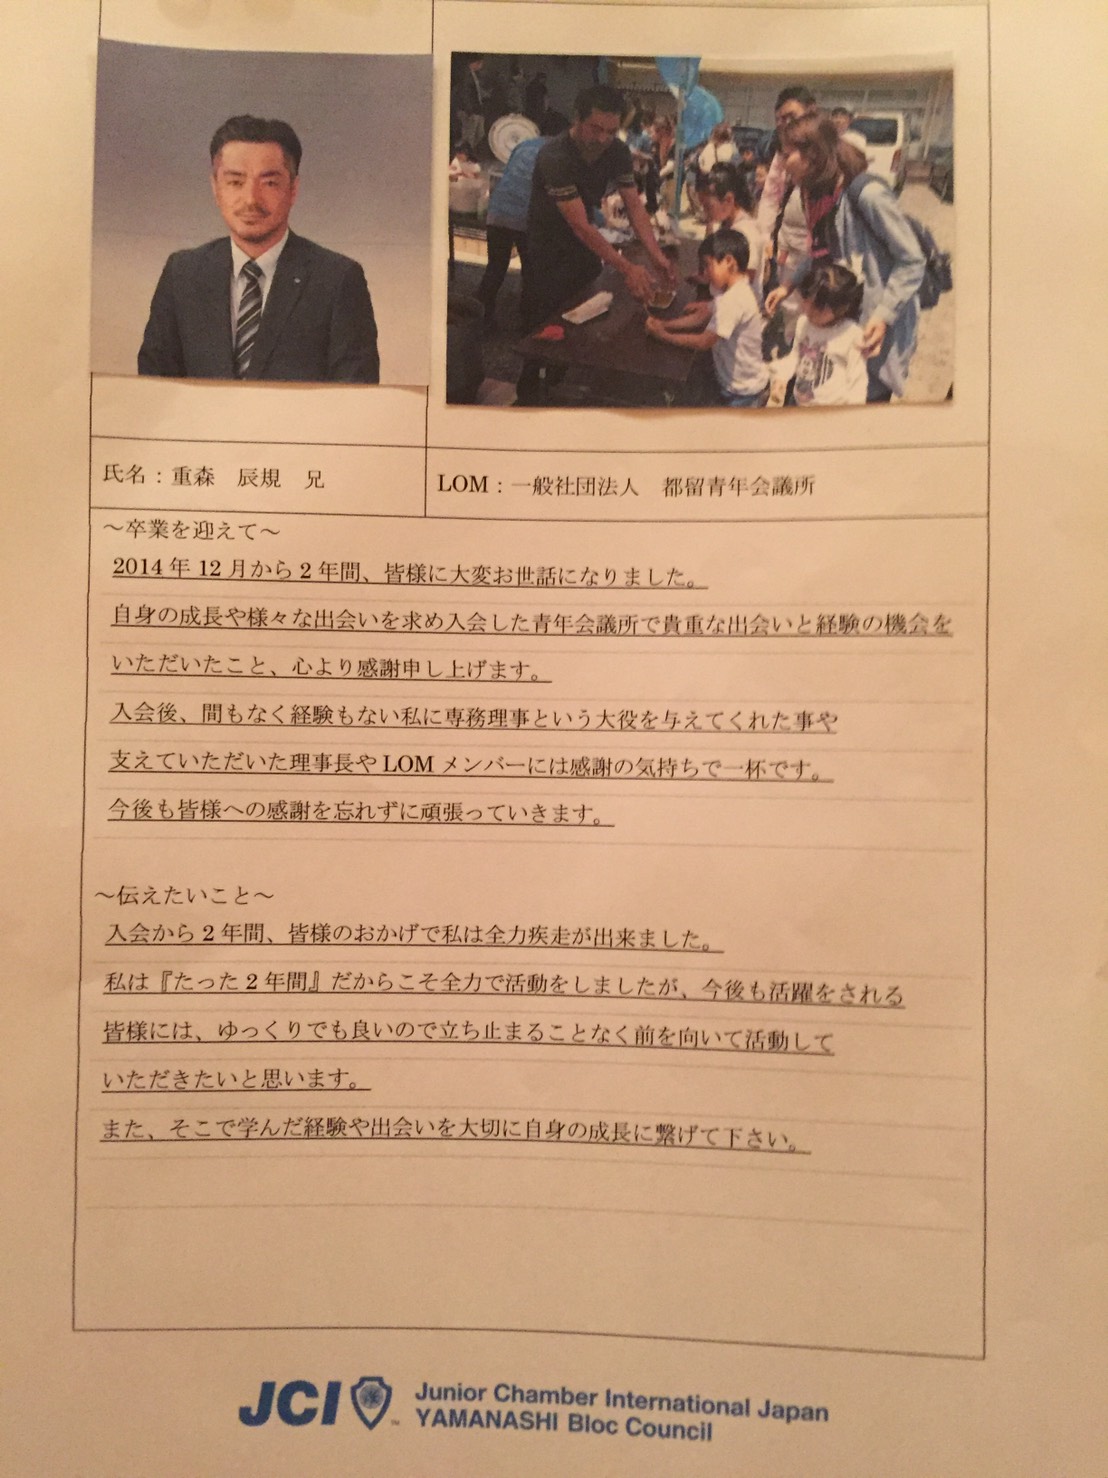 氏名：重森　辰規　兄
LOM：一般社団法人　都留青年会議所
～卒業を迎えて～
2014年12月から2年間、皆様に大変お世話になりました。
自身の成長や様々な出会いを求め入会した青年会議所で貴重な出会いと経験の機会を
いただいたこと、心より感謝申し上げます。
入会後、間もなく経験もない私に専務理事という大役を与えてくれた事や
支えていただいた理事長やLOMメンバーには感謝の気持ちで一杯です。
今後も皆様への感謝を忘れずに頑張っていきます。
～伝えたいこと～
入会から2年間、皆様のおかげで私は全力疾走が出来ました。
私は『たった2年間』だからこそ全力で活動をしましたが、今後も活躍をされる
皆様には、ゆっくりでも良いので立ち止まることなく前を向いて活動して
いただきたいと思います。
また、そこで学んだ経験や出会いを大切に自身の成長に繋げて下さい。
JCI
TM
Junior Chamber International Japan
YAMANASHI Bloc Council